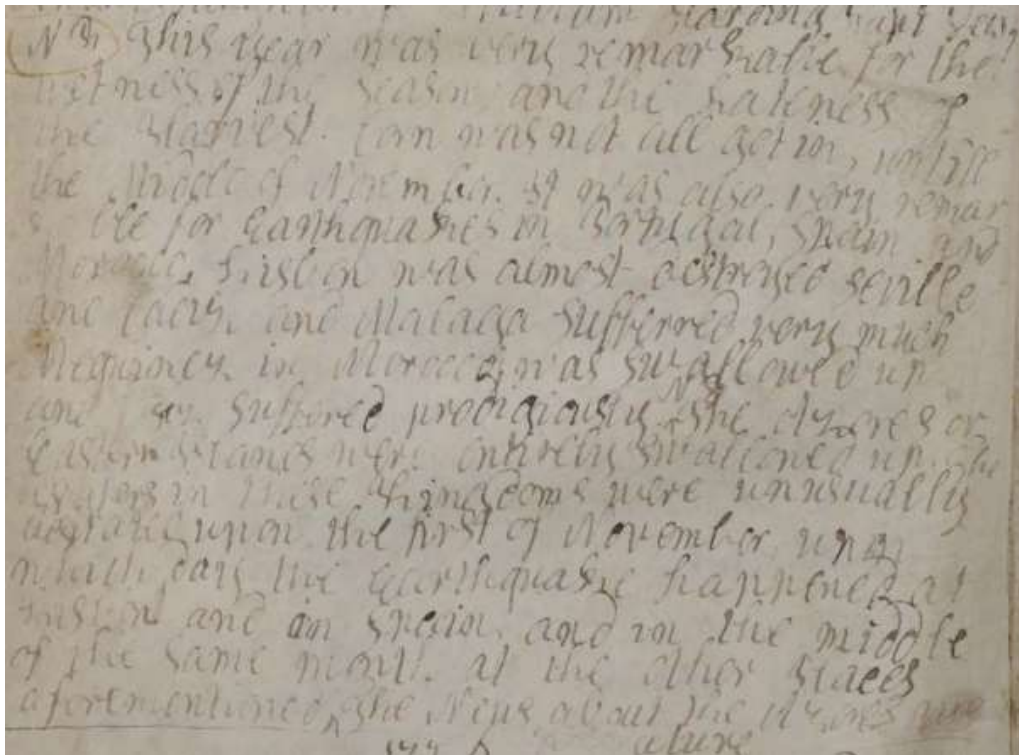 NB This year was very remarkable for the
wetness of the season and the lateness of
the Harvest. Corn was not all got in, untill
the Middle of November. It was also very remar
ble for Earthquakes in Portugal, Spain and
Morocco, Lisbon was almost destroyed Seville
and Cadiz, and Malaga Sufferred very much
Mequinez in Morocco, was swallowed up
and Suffered prodigiously The Azores or
Islands were entirely swallowed up. The
waters in these Kingdoms were unusually
agitated upon the first of November upon
which day the Earthquake happened at
Lisbon and in Spain, and in the middle
of the same month at the other places
aforementioned, The News about the Azores